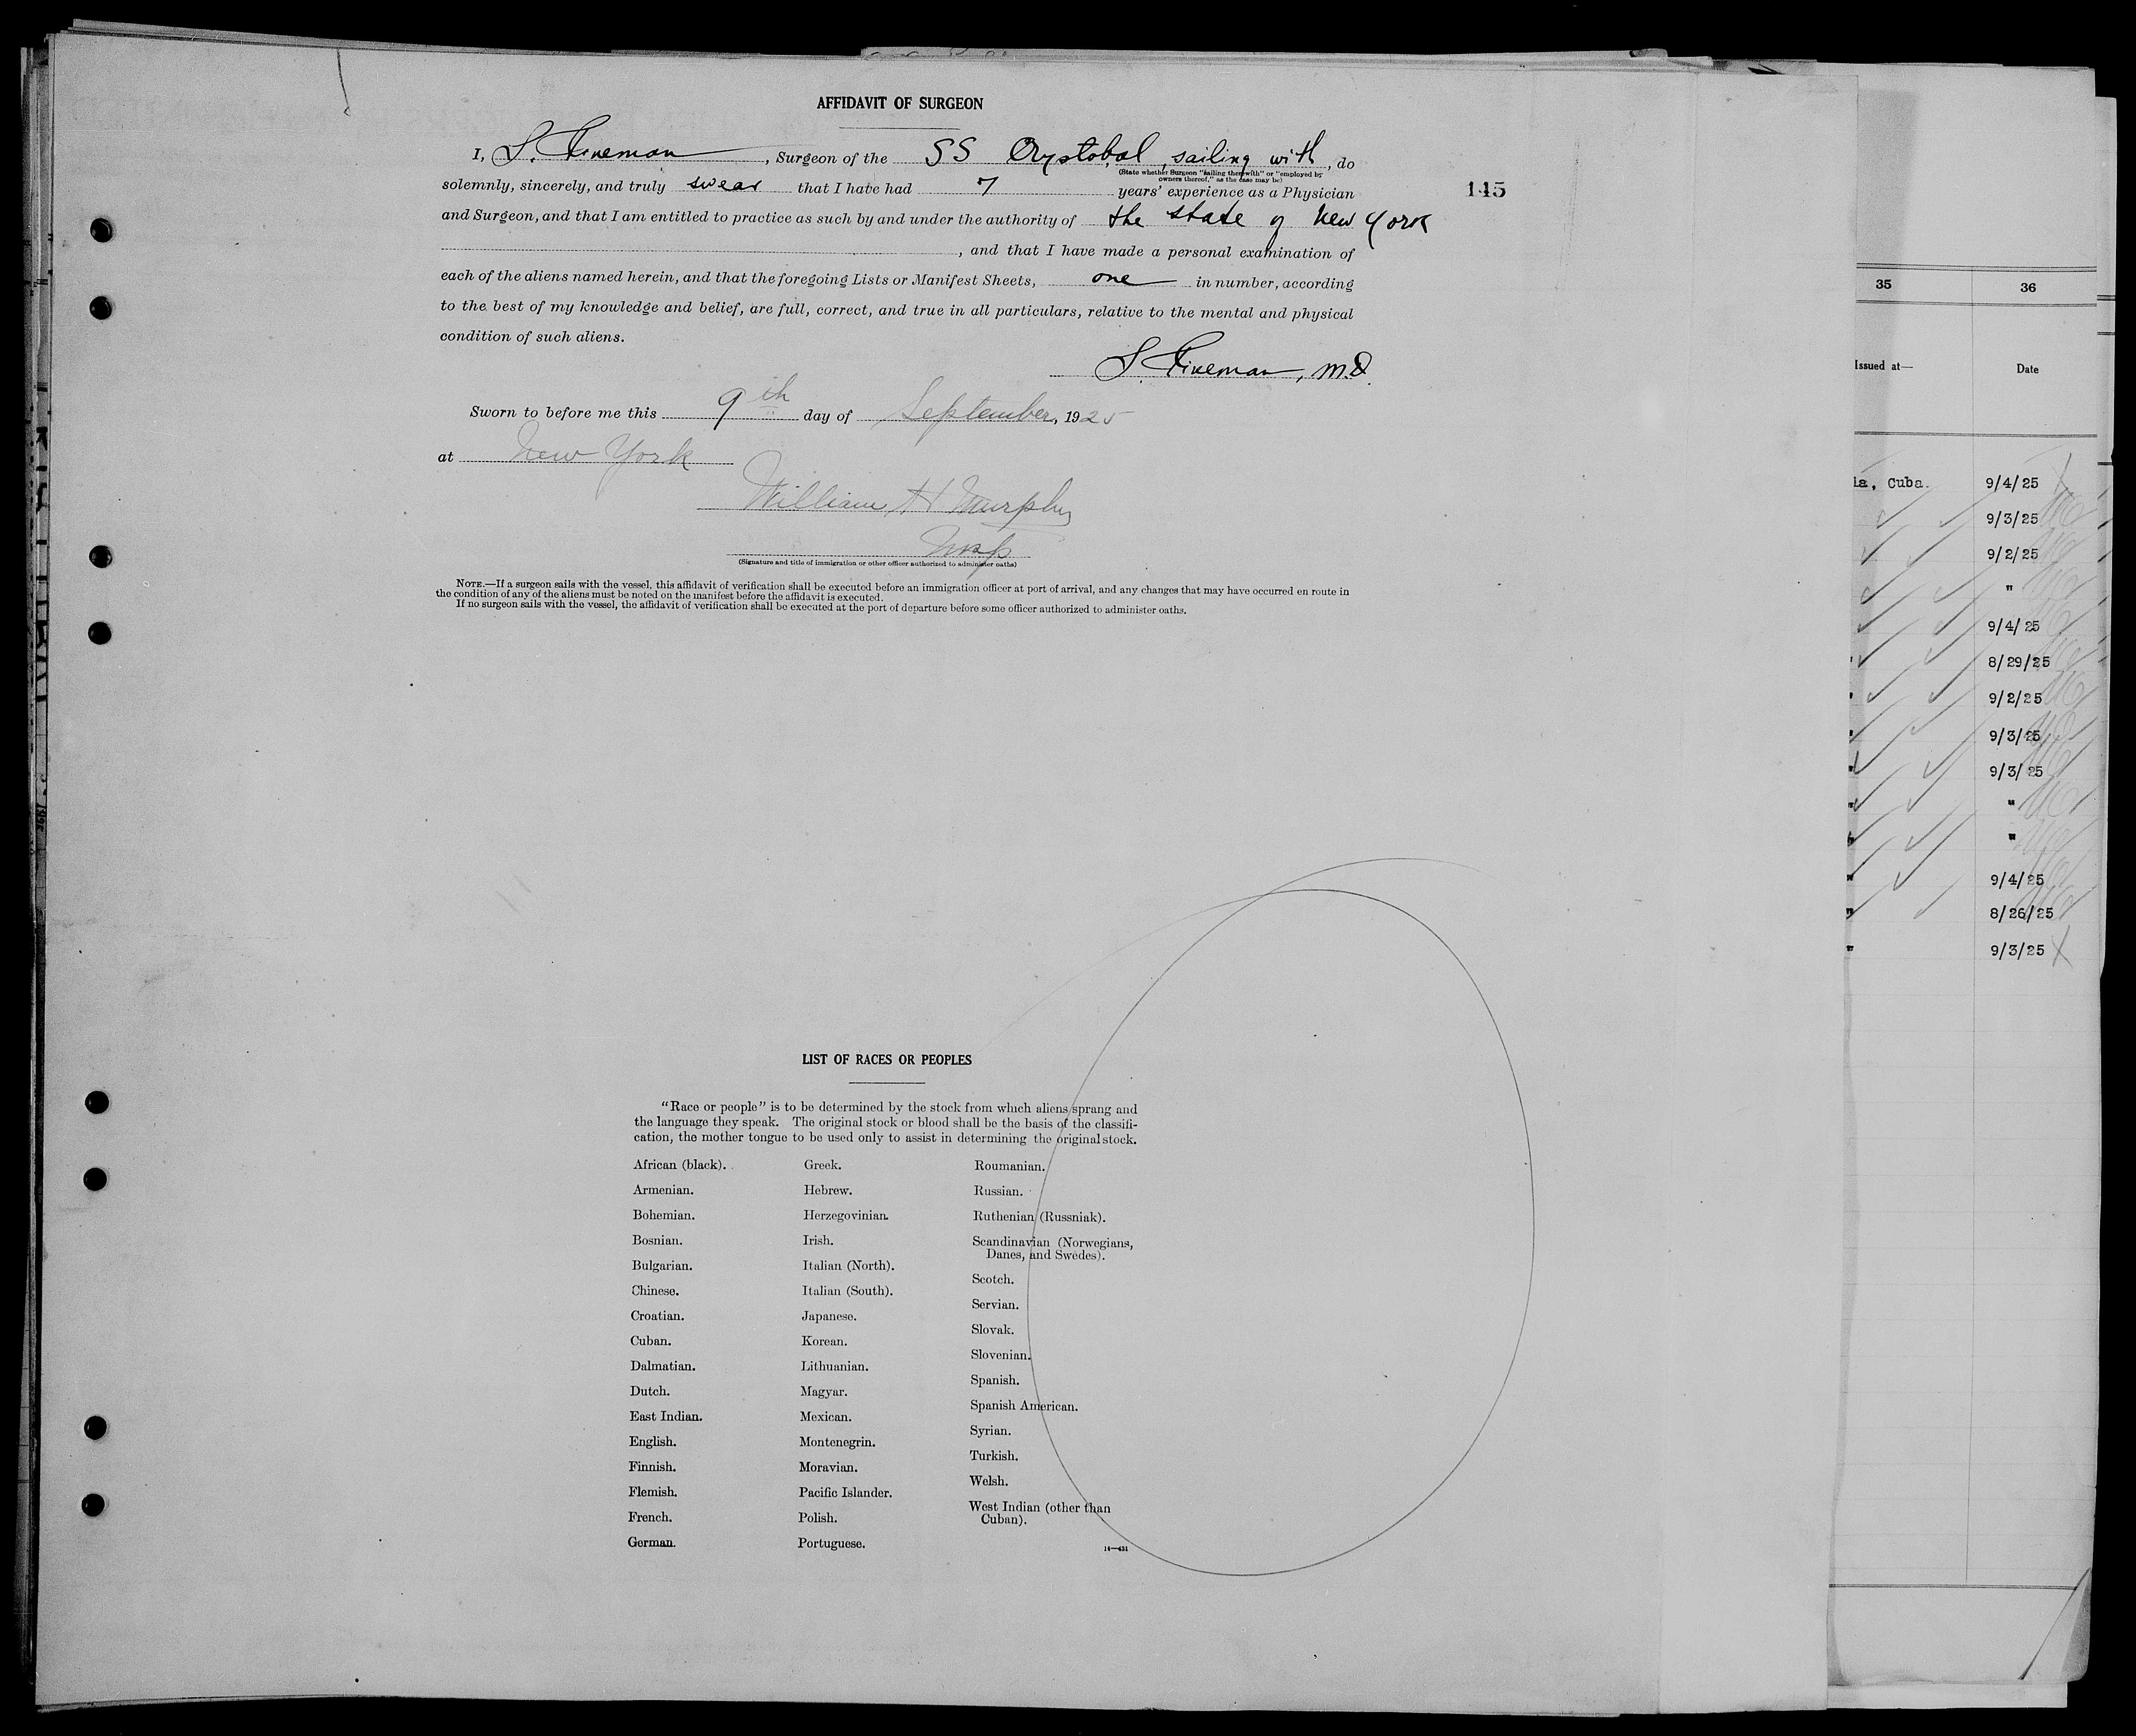 AFFIDAVIT OF SURGEON
I, S. Fineman, Surgeon of the SS Crystobal, sailing with, do
(State whether Surgeon "sailing therewith" or "employed by
owners thereof," as the case may be)
solemnly, sincerely, and truly swear that I have had 7 years' experience as a Physician
145
and Surgeon, and that I am entitled to practice as such by and under the authority of the state of New York
, and that I have made a personal examination of
each of the aliens named herein, and that the foregoing Lists or Manifest Sheets, one in number, according
to the best of my knowledge and belief, are full, correct, and true in all particulars, relative to the mental and physical
condition of such aliens.
S. Fineman, M.D.
Sworn to before me this 9th day of September, 1925
at New York
William H Murphy
Insp
(Signature and title of immigration or other officer authorized to administer oaths)
NOTE.—If a surgeon sails with the vessel, this affidavit of verification shall be executed before an immigration officer at port of arrival, and any changes that may have occurred en route in
the condition of any of the aliens must be noted on the manifest before the affidavit is executed.
If no surgeon sails with the vessel, the affidavit of verification shall be executed at the port of departure before some officer authorized to administer oaths.
LIST OF RACES OR PEOPLES
"Race or people" is to be determined by the stock from which aliens sprang and
the language they speak. The original stock or blood shall be the basis of the classifi-
cation, the mother tongue to be used only to assist in determining the original stock.
African (black).
Armenian.
Bohemian.
Bosnian.
Bulgarian.
Chinese.
Croatian.
Cuban.
Dalmatian.
Dutch.
East Indian.
English.
Finnish.
Flemish.
French.
German.
Greek.
Hebrew.
Herzegovinian.
Irish.
Italian (North).
Italian (South).
Japanese.
Korean.
Lithuanian.
Magyar.
Mexican.
Montenegrin.
Moravian.
Pacific Islander.
Polish.
Portuguese.
Roumanian.
Russian.
Ruthenian (Russniak).
Scandinavian (Norwegians,
Danes, and Swedes).
Scotch.
Servian.
Slovak.
Slovenian.
Spanish.
Spanish American.
Syrian.
Turkish.
Welsh.
West Indian (other than
Cuban).
14—431
35 36
Issued at— Date
ia, Cuba. 9/4/25
9/3/25
9/2/25
"
9/4/25
" 8/29/25
" 9/2/25
" 9/3/25
" 9/3/25
" "
" "
" 9/4/25
" 8/26/25
" 9/3/25